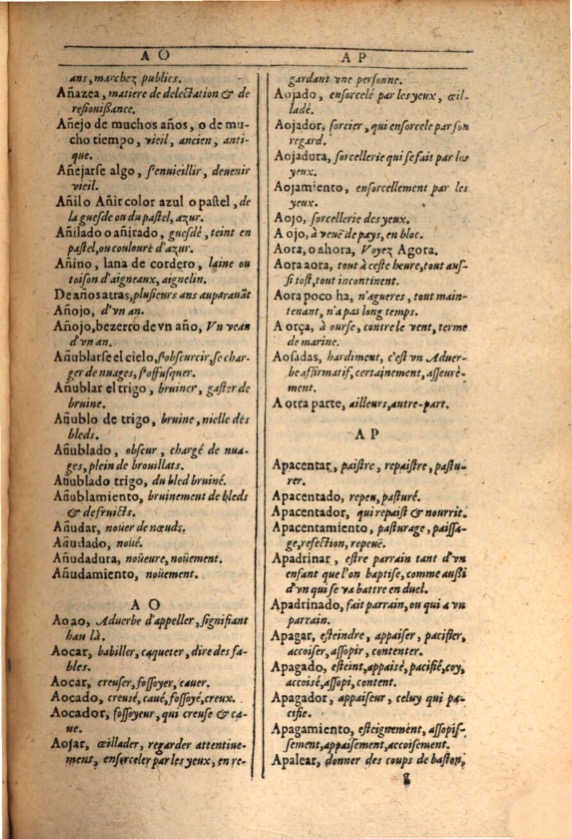 A O
ans, marchez publics.
Añazea, matiere de delectation & de
resiouißance.
Añejo de muchos años, o de mu-
cho tiempo, vieil, ancien, anti-
que.
Añejarse algo, s'enuieillir, deuenir
vieil.
Añil o Añir color azul o pastel, de
la guesde ou du pastel, azur.
Añilado o añirado, guesdé, teint en
pastel, ou coulouré d'azur.
Añino, lana de cordero, laine ou
toison d'aigneaux, aignelin.
De años atras, plusieurs ans auparauãt
Añojo, d'vn an.
Añojo, bezerro de vn año, Vn veau
d'vn an.
Añublarse el cielo, s'obscurcir, se char-
ger de nuages, s'offusquer.
Añublar el trigo, bruiner, gaster de
bruine.
Añublo de trigo, bruine, nielle des
bleds.
Añublado, obscur, chargé de nua-
ges, plein de brouillats.
Añublado trigo, du bled bruiné.
Añublamiento, bruinement de bleds
& de fruicts.
Añudar, noüer de nœuds.
Añudado, noüé.
Añudadura, noüeure, noüement.
Añudamiento, noüement.
A O
Aoao, Aduerbe d'appeller, signifiant
hau là.
Aocar, babiller, caqueter, dire des fa-
bles.
Aocar, creuser, fossoyer, cauer.
Aocado, creusé, caué, fossoyé, creux.
Aocador, fossoyeur, qui creuse & ca-
ue.
Aojar, œillader, regarder attentiue-
mens, ensorceler par les yeux, en re-
A P
gardant vne personne.
Aojado, ensorcelé par les yeux, œil-
ladé.
Aojador, sorcier, qui ensorcele par son
regard.
Aojadura, sorcellerie qui se fait par les
yeux.
Aojamiento, ensorcellement par les
yeux.
Aojo, sorcellerie des yeux.
A ojo, à veuë de pays, en bloc.
Aora, o ahora, Voyez Agora.
Aora aora, tout à ceste heure, tout aus-
si tost, tout incontinent.
Aora poco ha, n'agueres, tout main-
tenant, n'a pas long temps.
A orça, à ourse, contre le vent, terme
de marine.
Aosadas, hardiment, c'est vn Aduer-
be affirmatif, certainement, asseuré-
ment.
A otra parte, ailleurs, autre-part.
A P
Apacentar, paistre, repaistre, pastu-
rer.
Apacentado, repeu, pasturé.
Apacentador, qui repaist & nourrit.
Apacentamiento, pasturage, paissa-
ge, refection, repeuë.
Apadrinar, estre parrain tant d'vn
enfant que l'on baptise, comme außi
d'vn qui se va battre en duel.
Apadrinado, fait parrain, ou qui a vn
parrain.
Apagar, esteindre, appaiser, pacifier,
accoiser, assopir, contenter.
Apagado, esteint, appaisé, pacifié, coy,
accoisé, assopi, content.
Apagador, appaiseur, celuy qui pa-
cifie.
Apagamiento, esteignement, assopis-
sement, appaisement, accoisement.
Apalear, donner des coups de baston,
g